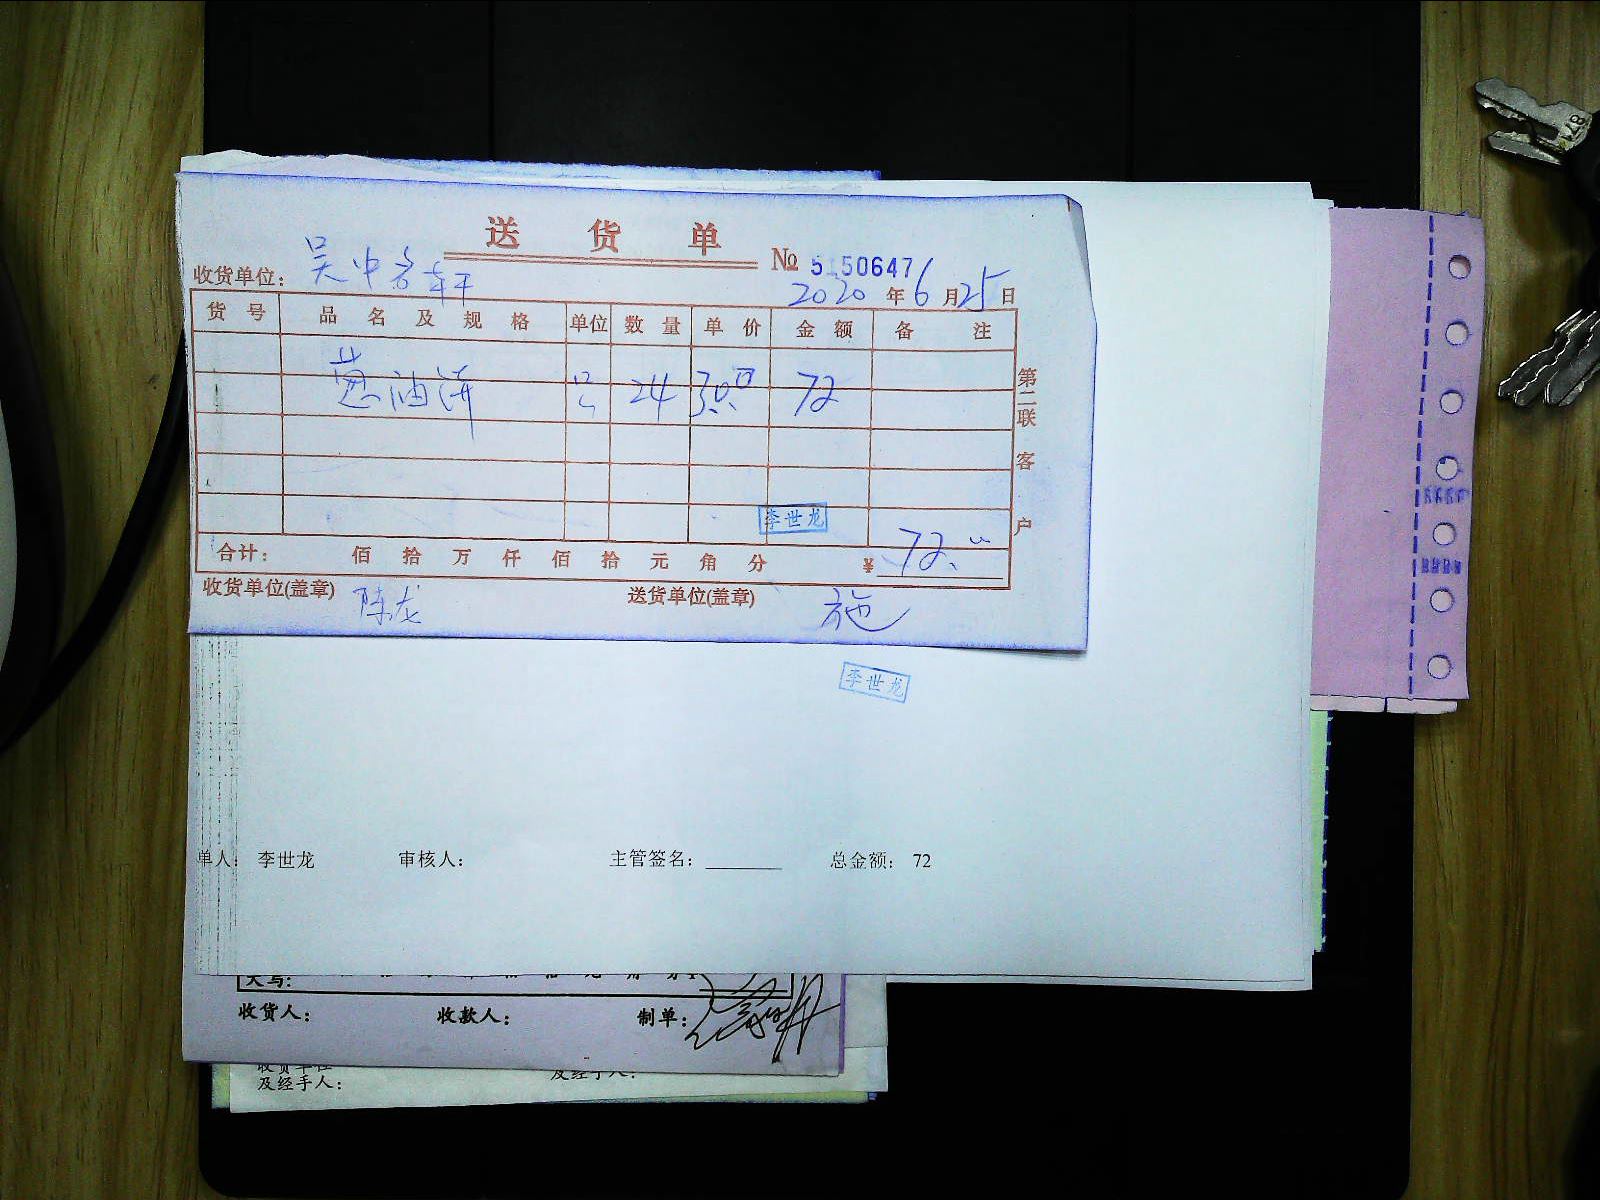 送 货 单
№ 5150647
收货单位: 吴中名轩
2020 年 6 月 25 日
货 号 品 名 及 规 格 单位 数 量 单 价 金 额 备 注
葱油饼 只 24 72
李世龙
合计: 佰 拾 万 仟 佰 拾 元 角 分 ¥ 72.
收货单位(盖章) 陈龙 送货单位(盖章) 施
第二联 客 户
李世龙
单人: 李世龙 审核人: 主管签名: 总金额: 72
大写:
收货人: 收款人: 制单:
收货单位
及经手人: 及经手人: